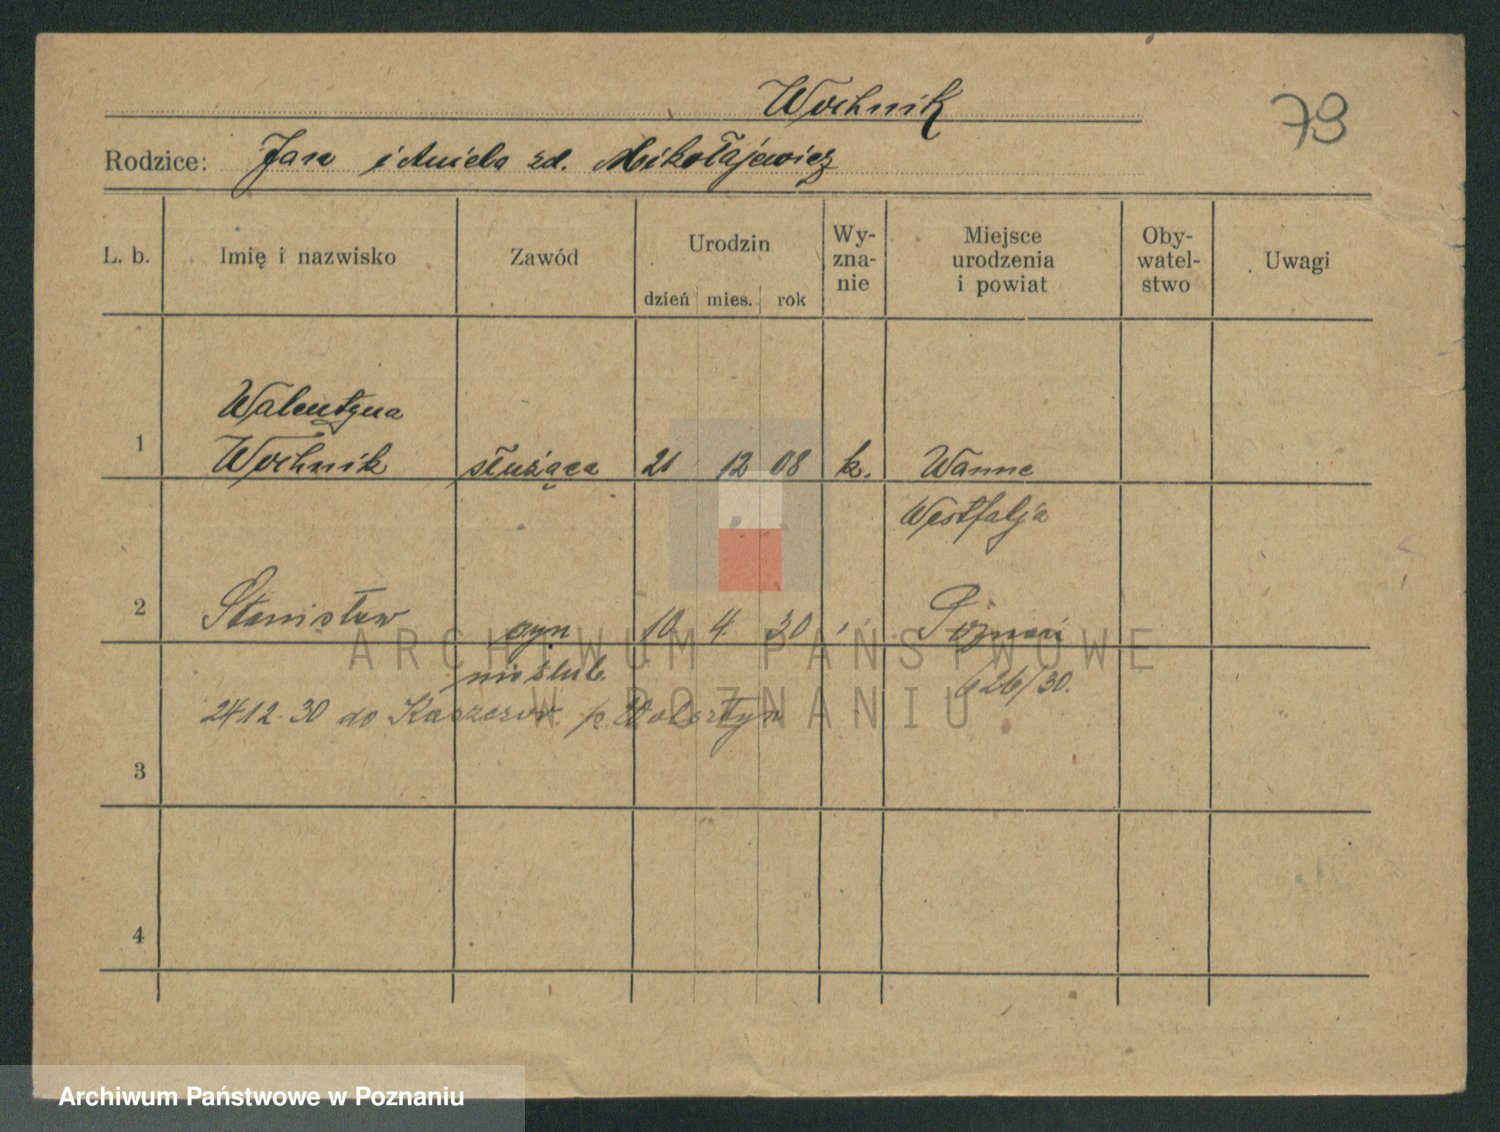 Wochnik
79
Rodzice: Jan i Aniela zd. Mikołajewicz
L. b. Imię i nazwisko Zawód Urodzin dzień mies. rok Wy-zna-nie Miejsce urodzenia i powiat Oby-watel-stwo Uwagi
Walentyna
1 Wochnik służąca 21 12 08 k. Wanne
Westfalja
2 Stanisław syn 10 4. 30 Poznań
nieślub. 626/30.
24.12.30 do p. Wolsztyn
3
4
ARCHIWUM PAŃSTWOWE
W POZNANIU
Archiwum Państwowe w Poznaniu